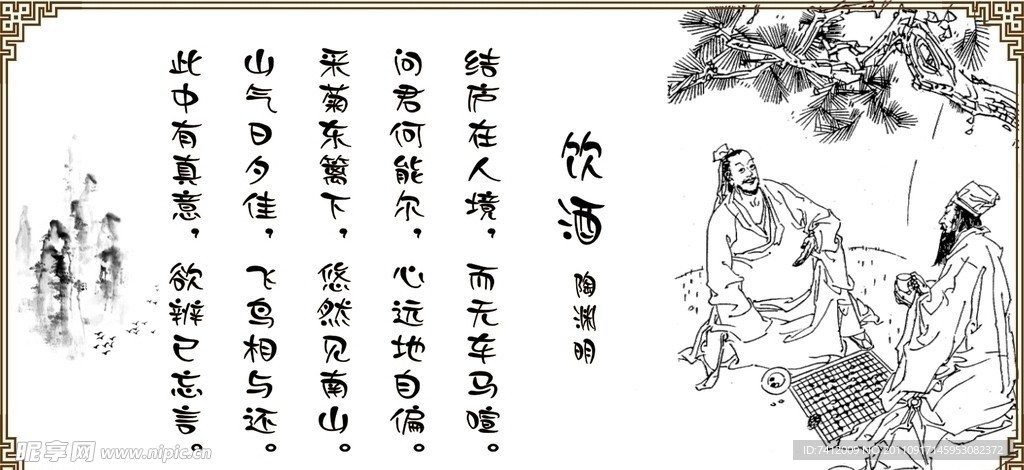 饮酒
陶渊明
结庐在人境，而无车马喧。
问君何能尔，心远地自偏。
采菊东篱下，悠然见南山。
山气日夕佳，飞鸟相与还。
此中有真意，欲辨已忘言。
昵享网 www.nipic.cn
ID:7412009 NO:20110917145953082372